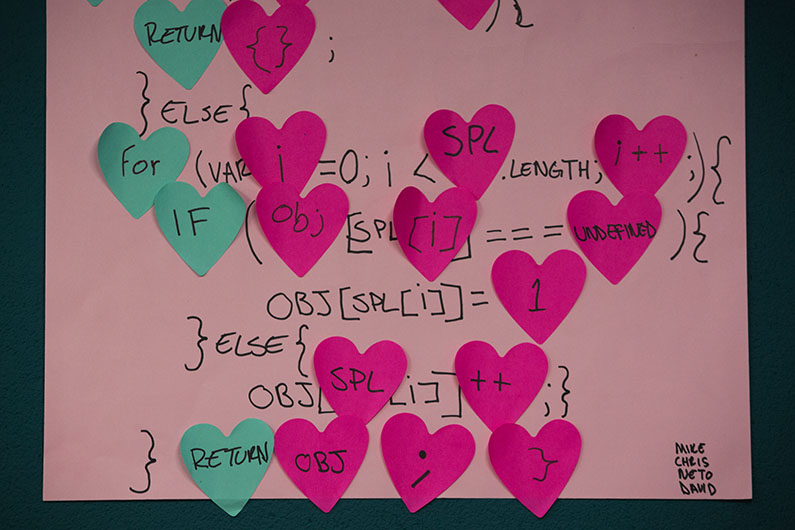 ){
RETURN {} ;
} ELSE {
For (VAR i =0; i < SPL .LENGTH; i++ ;){
IF (Obj [SPL[i]] === UNDEFINED ){
OBJ[SPL[i]]= 1
} ELSE {
OBJ[SPL[i]] ++ ;}
} RETURN OBJ ; }
MIKE
CHRIS
NETO
DAVID